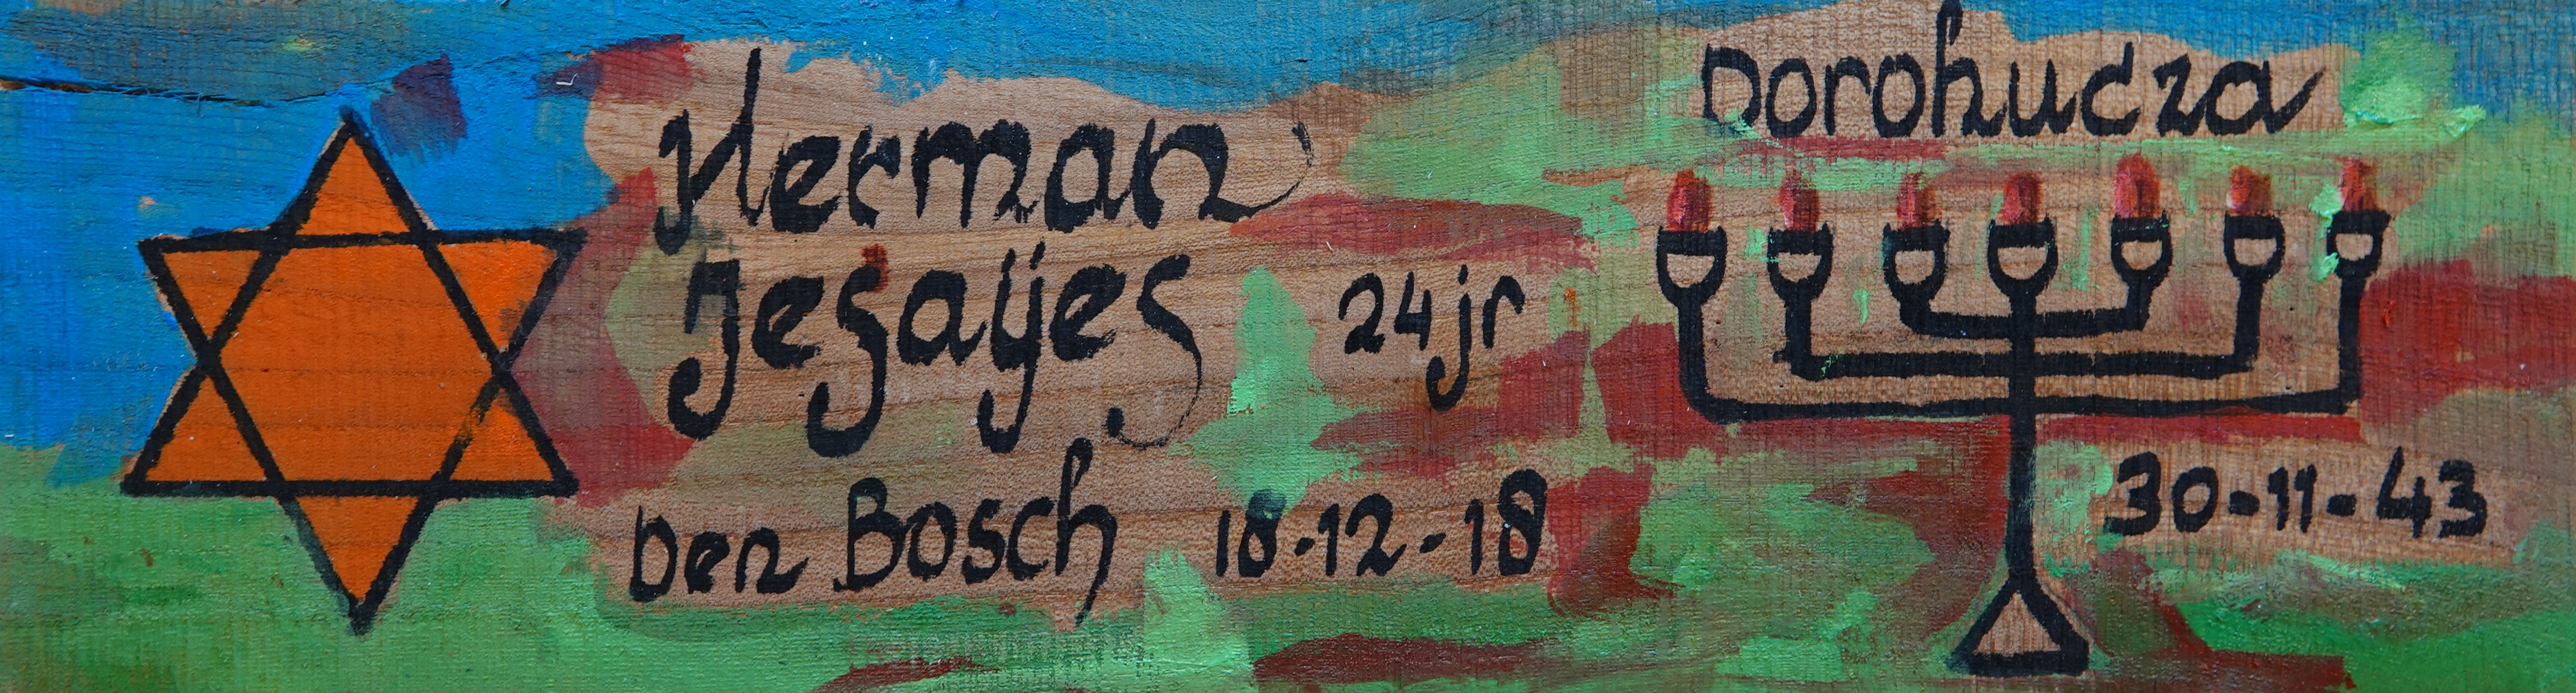 Herman
Jesaijes
24jr
Den Bosch 18-12-18
Dorohucza
30-11-43